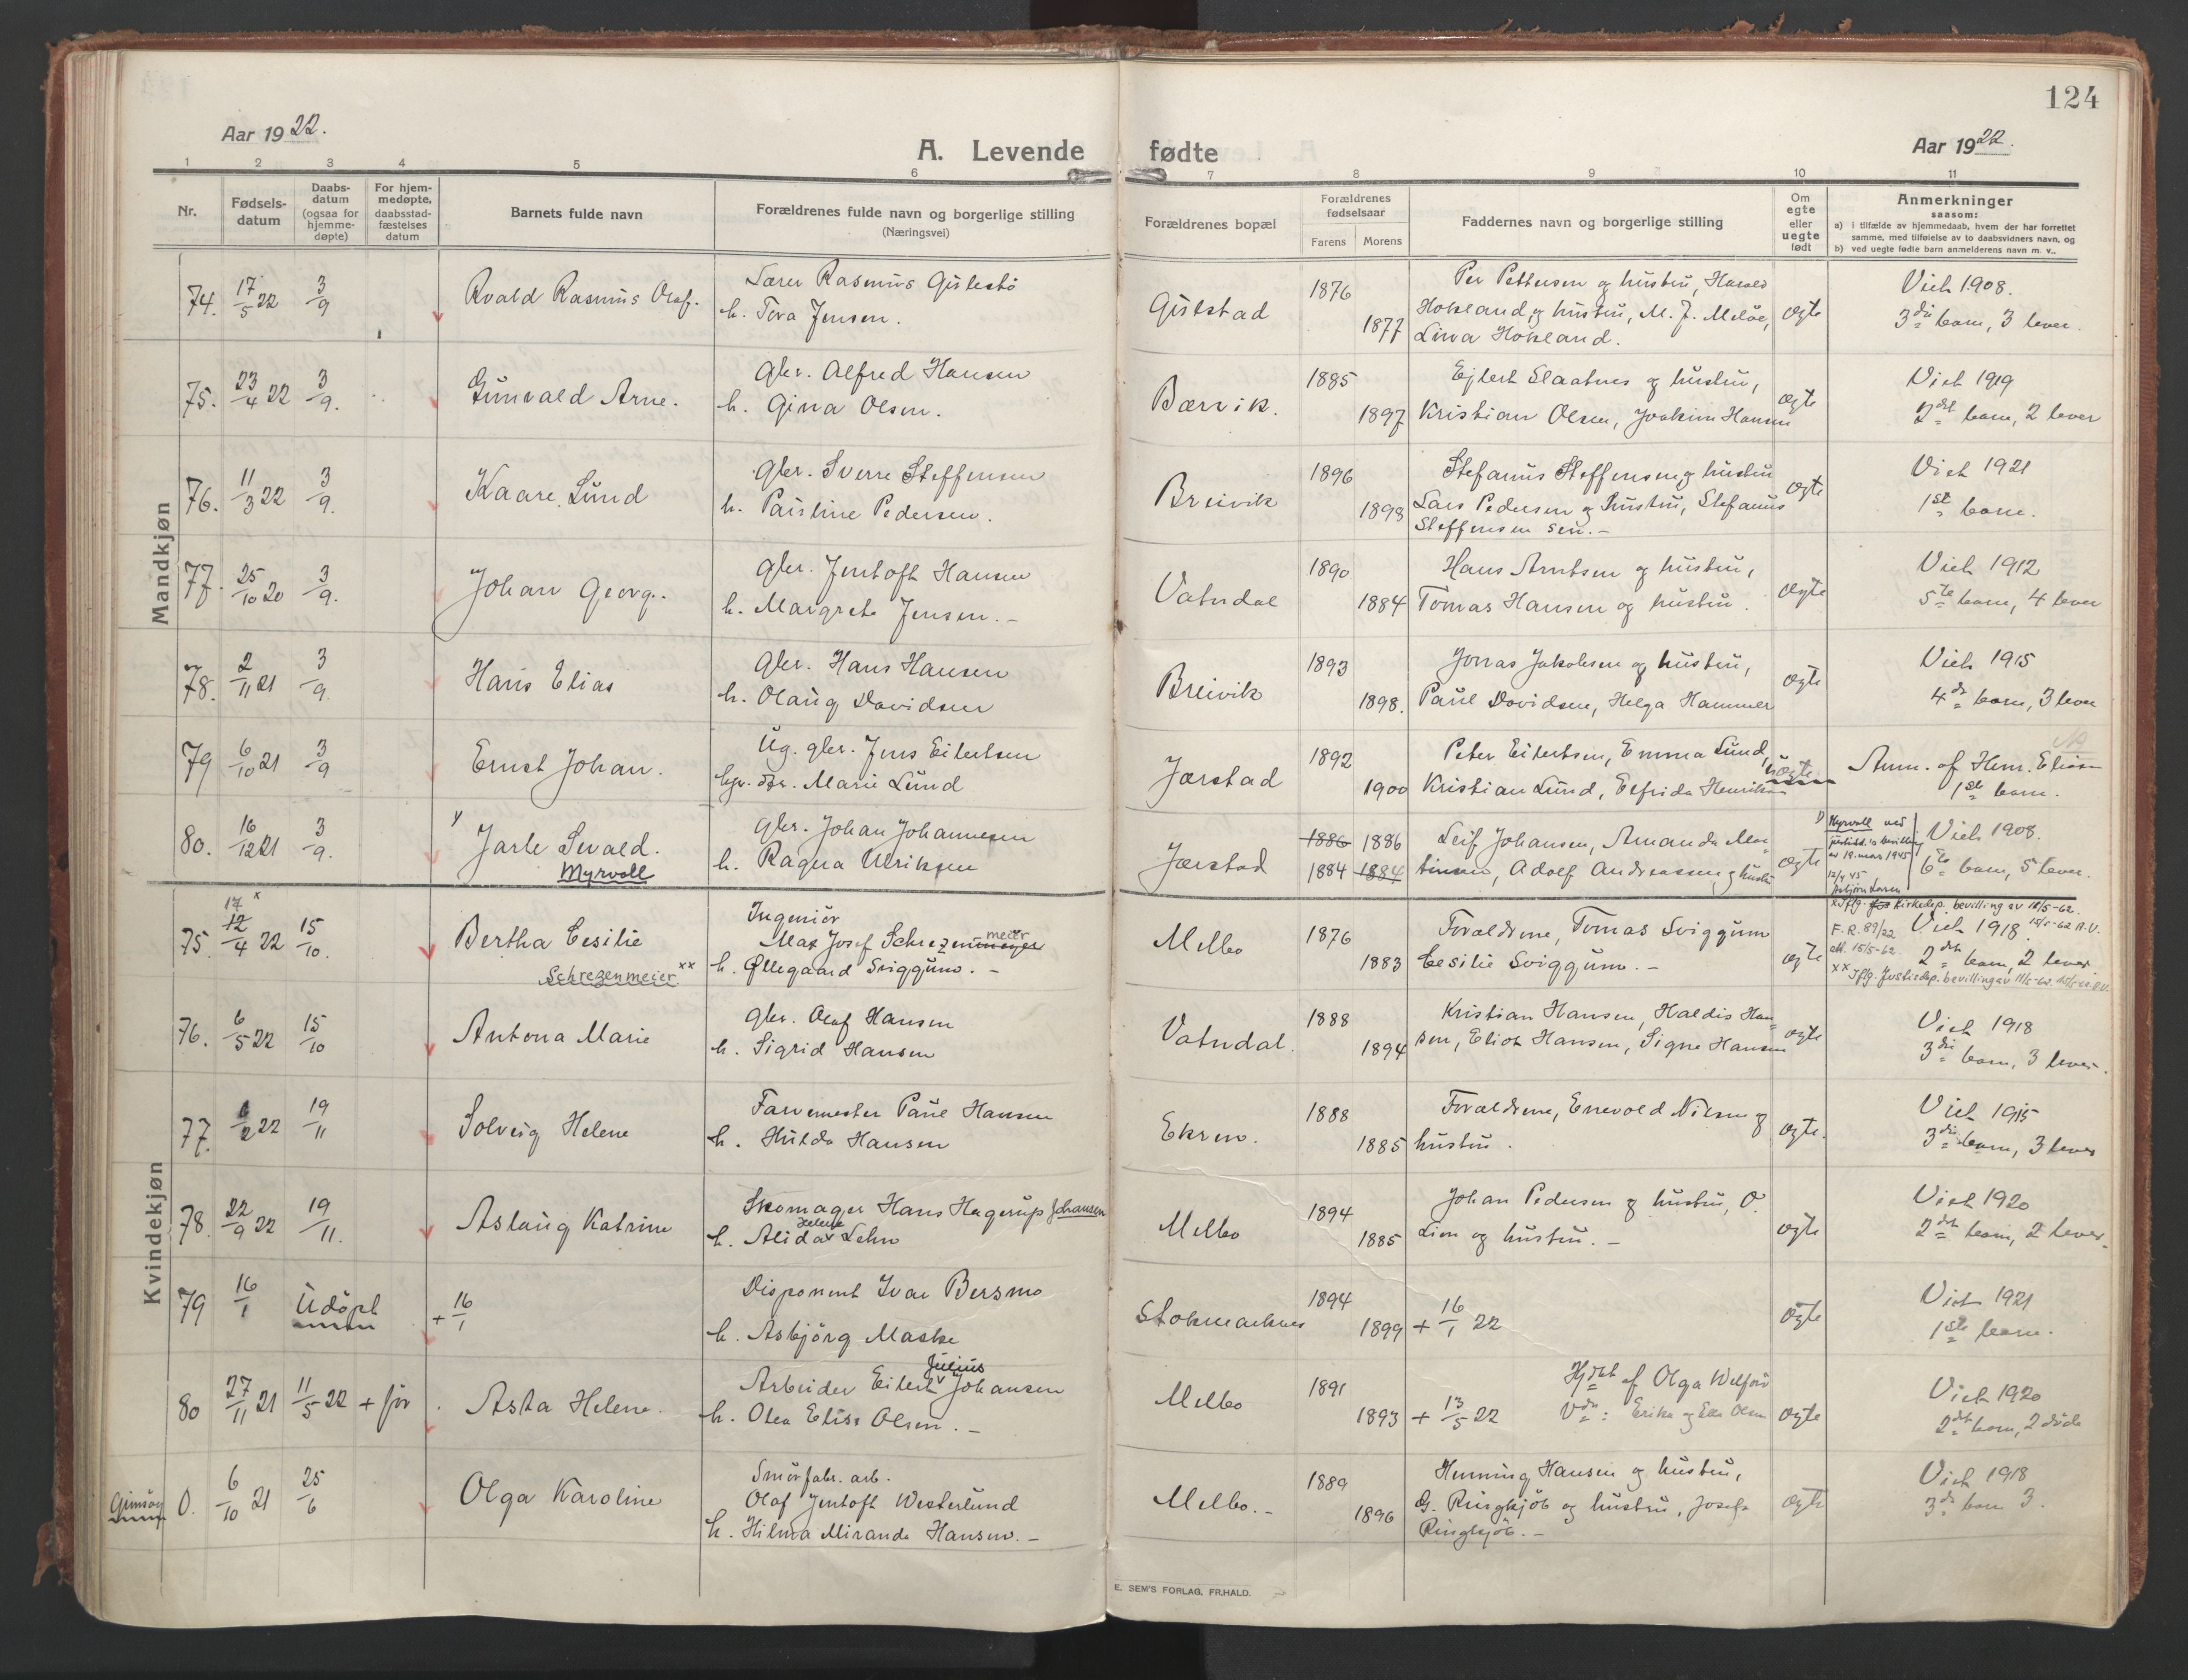 124
Aar 1922.
A. Levende fødte
Aar 1922.
1 2 3 4 5 6 7 8 9 10 11
Nr.
Fødsels-
datum
Daabs-
datum
(ogsaa for
hjemme-
døpte)
For hjem-
medøpte,
daabsstad-
fæstelses
datum
Barnets fulde navn
Forældrenes fulde navn og borgerlige stilling
(Næringsvei)
Forældrenes bopæl
Forældrenes
fødselsaar
Farens Morens
Faddernes navn og borgerlige stilling
Om
egte
eller
uegte
født
Anmerkninger
saasom:
a) i tilfælde av hjemmedaab, hvem der har forrettet
samme, med tilføielse av to daabsvidners navn, og
b) ved uegte fødte barn anmelderens navn m. v..
Mandkjøn
74. 17/5 22 3/9 Rvald Rasmus Olaf. Lærer Rasmus Gulestö
h. Tora Jensen.
Gulstad 1876 1877
Per Pettersen og hustru, Harald
Hokland og hustru, M. J. Melöe,
Lina Hokland.
ægte
Viet 1908.
3die barn, 3 lever.
75. 23/4 22 3/9. Gunvald Arne. gbr. Alfred Hansen
h. Gina Olsen.
Bærvik. 1885 1897
Ejlert Slaatnes og hustru,
Kristian Olsen, Joakim Hansen
ægte
Viet 1919
2det barn, 2 lever
76. 11/3 22 3/9. Kaare Lund gbr. Sverre Steffensen
h. Pauline Pedersen.
Breivik 1896 1893
Stefanus Steffensen og hustru
Lars Pedersen og hustru, Stefanus
Steffensen sen. -
ægte
Viet 1921
1ste barn.
77. 25/10 20 3/9. Johan Georg. gbr. Jentoft Hansen
h. Margrete Jensen. -
Vatndal 1890 1884
Hans Arntsen og hustru,
Tomas Hansen og hustru.
ægte
Viet 1912
5te barn, 4 lever
78. 2/11 21 3/9. Hans Elias gbr. Hans Hansen
h. Olaug Davidsen
Breivik 1893 1898.
Jonas Jakobsen og hustru,
Paul Davidsen, Helga Hammer
ægte
Viet 1915
4de barn, 3 lever
79 6/10 21 3/9 Ernst Johan. Ug. gbr. Jens Eilertsen
Marie Lund
Jørstad 1892 1900
Peter Eilertsen, Emma Lund,
Kristian Lund, Elfrida Henriksen
uægte
Anm. af Henr. Elias
1ste barn.
80. 16/12 21 3/9. Jarle Sevald.
Myrvoll
gbr. Johan Johannesen
h. Ragna Ulriksen
Jørstad 1886 1886
1884 1884
Leif Johansen, Amanda Mor-
tinsen, Adolf Andreassen og hustru
ægte
Myrvoll ved
justisd.s bevilling
av 19. mars 1945
12/4 45
Viet 1908.
6te barn, 5 lever.
Kvindekjøn
75. 17 x
12/4 22 15/10. Bertha Cesilie
Schrezenmeier xx
Ingeniør
Max Josef Schrezenmeyer meier
h. Øllegaard Sviggum. -
Melbo 1876 1883
Forældrene, Tomas Sviggum
Cesilie Sviggum. -
ægte
x Iflg. Kirkedep. bevilling av 11/5-62.
F.R. 89/22 15/5-62 R.V.
att. 15/5-62.
Viet 1918
2det barn, 2 lever
xx Iflg. Justisdep. bevilling av 11/5-62. 15/5-62. R.V.
76. 6/5 22 15/10 Antona Marie gbr. Olaf Hansen
h. Sigrid Hansen
Vatndal. 1888 1894
Kristian Hansen, Haldis Han-
sen, Eliot Hansen, Signe Hansen
ægte
Viet 1918
3die barn, 3 lever.
77. 6/2 22 19/11 Solveig Helene Farvemester Paul Hansen
h. Hulda Hansen
Ekren. 1888 1885
Forældrene, Enevold Nilsen og
hustru.
ægte.
Viet 1915
3die barn, 3 lever
78. 22/9 22 19/11. Aslaug Katrine Skomager Hans Hagerup Johansen
h. Alida Helene Lehn
Melbo 1894 1885
Johan Pedersen og hustru, O.
Lien og hustru. -
ægte
Viet 1920
2det barn, 2 lever.
79 16/1 Udöpt + 16/1 Disponent Ivar Bersmo
h. Asbjörg Maske
Stokmarknes 1894 1899 + 16/1 22
ægte
Viet 1921
1ste barn.
80 27/11 21 11/5 22 + för Asta Helene. Arbeider Eilert Julius Johansen
h. Olea Elise Olsen. -
Melbo 1891 1893 + 13/5 22
Hjdöbt af Olga
Erika og Olsen
ægte
Viet 1920
2det barn, 2 döde
Gimsöy 0. 6/10 21 25/6 Olga Karoline Smørfabr. arb.
Olaf Jentoft Westerlund
h. Hilma Miranda Hansen. -
Melbo. - 1889 1896
Henning Hansen og hustru,
G. Ringkjöb og hustru, Josefa
Ringkjöb. -
ægte
Viet 1918
3die barn 3.
E. SEM'S FORLAG, FR.HALD.